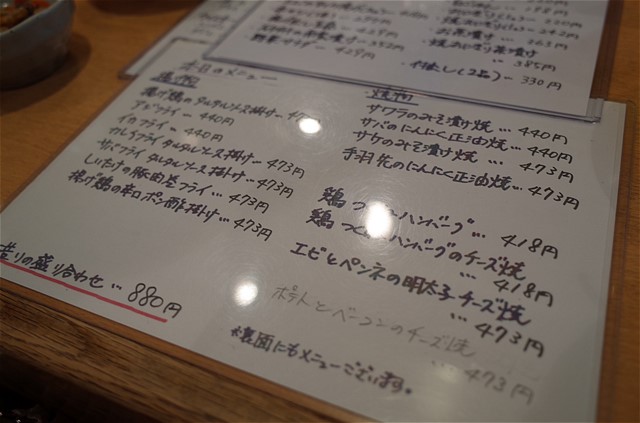 本日のメニュー
揚げ物
揚げ鶏のタルタルソース掛け…
アジフライ… 440円
イカフライ… 440円
カレイフライ タルタルソース掛け… 473円
サバフライ タルタルソース掛け… 473円
しいたけの豚肉巻フライ… 473円
揚げ鶏の辛口ポン酢掛け… 473円
造りの盛り合わせ… 880円
焼物
サワラのみそ漬け焼… 440円
サバのにんにく正油焼… 440円
サケのみそ漬け焼… 473円
手羽先のにんにく正油焼… 473円
鶏つくねハンバーグ… 418円
鶏つくねハンバーグのチーズ焼
… 418円
エビとペンネの明太子チーズ焼
… 473円
ポテトとベーコンのチーズ焼
… 473円
裏面にもメニューございます。
お茶漬け… 463円
焼おにぎり茶漬け
… 385円
(2品)… 330円
429円